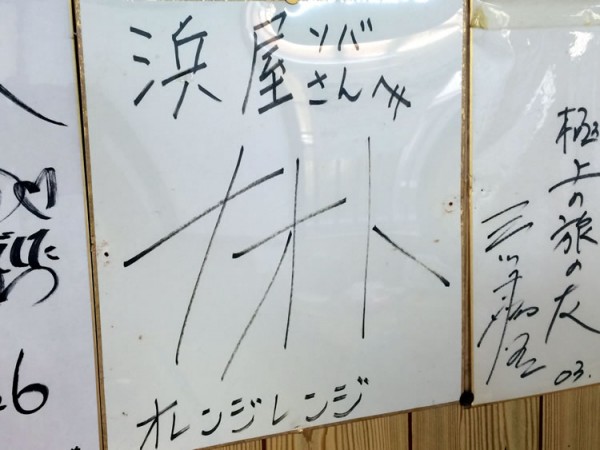 浜屋ソバ
さんへ
ナオト
オレンジレンジ
極上の旅の友
03.
6